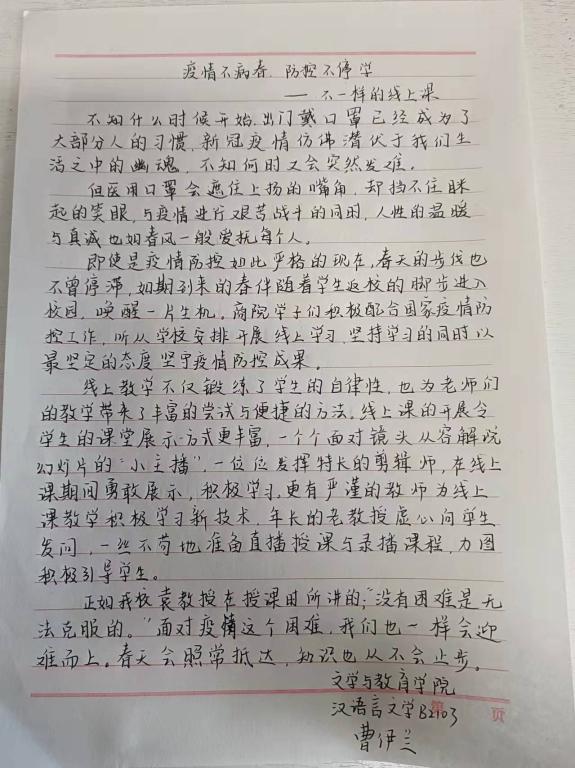 疫情不病春，防控不停学
——不一样的线上课
不知什么时候开始，出门戴口罩已经成为了
大部分人的习惯，新冠疫情仿佛潜伏于我们生
活之中的幽魂，不知何时又会突然发难。
但医用口罩会遮住上扬的嘴角，却挡不住眯
起的笑眼，与疫情进行艰苦战斗的同时，人性的温暖
与真诚也如春风一般爱抚每个人。
即使是疫情防控如此严格的现在，春天的步伐也
不曾停滞，如期到来的春伴随着学生返校的脚步进入
校园，唤醒一片生机。商院学子们积极配合国家疫情防
控工作，听从学校安排开展线上学习，坚持学习的同时以
最坚定的态度坚守疫情防控成果。
线上教学不仅锻练了学生的自律性，也为老师们
的教学带来了丰富的尝试与便捷的方法。线上课的开展令
学生的课堂展示方式更丰富，一个个面对镜头从容解说
幻灯片的“小主播”，一位位发挥特长的剪辑师，在线上
课期间勇敢展示，积极学习，更有严谨的教师为线上
课教学积极学习新技术，年长的老教授虚心向学生
发问，一丝不苟地准备直播授课与录播课程，力图
积极引导学生。
正如我校袁教授在授课时所讲的：“没有困难是无
法克服的。”面对疫情这个困难，我们也一样会迎
难而上。春天会照常抵达，知识也从不会止步。
文学与教育学院
汉语言文学B2103
曹伊兰
第 页